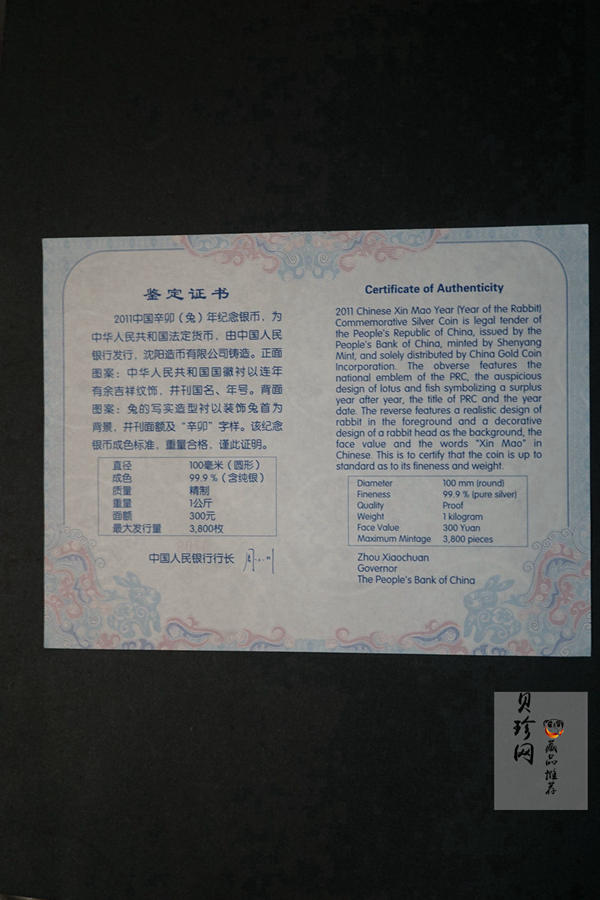 鉴定证书
2011中国辛卯（兔）年纪念银币，为
中华人民共和国法定货币，由中国人民
银行发行，沈阳造币有限公司铸造。正面
图案：中华人民共和国国徽衬以连年
有余吉祥纹饰，并刊国名、年号。背面
图案：兔的写实造型衬以装饰兔首为
背景，并刊面额及“辛卯”字样。该纪念
银币成色标准，重量合格，谨此证明。
直径 100毫米（圆形）
成色 99.9 %（含纯银）
质量 精制
重量 1公斤
面额 300元
最大发行量 3,800枚
中国人民银行行长
Certificate of Authenticity
2011 Chinese Xin Mao Year (Year of the Rabbit)
Commemorative Silver Coin is legal tender of
the People's Republic of China, issued by the
People's Bank of China, minted by Shenyang
Mint, and solely distributed by China Gold Coin
Incorporation. The obverse features the
national emblem of the PRC, the auspicious
design of lotus and fish symbolizing a surplus
year after year, the title of PRC and the year
date. The reverse features a realistic design of
rabbit in the foreground and a decorative
design of a rabbit head as the background, the
face value and the words "Xin Mao" in
Chinese. This is to certify that the coin is up to
standard as to its fineness and weight.
Diameter 100 mm (round)
Fineness 99.9 % (pure silver)
Quality Proof
Weight 1 kilogram
Face Value 300 Yuan
Maximum Mintage 3,800 pieces
Zhou Xiaochuan
Governor
The People's Bank of China
贝珍网
藏品推荐